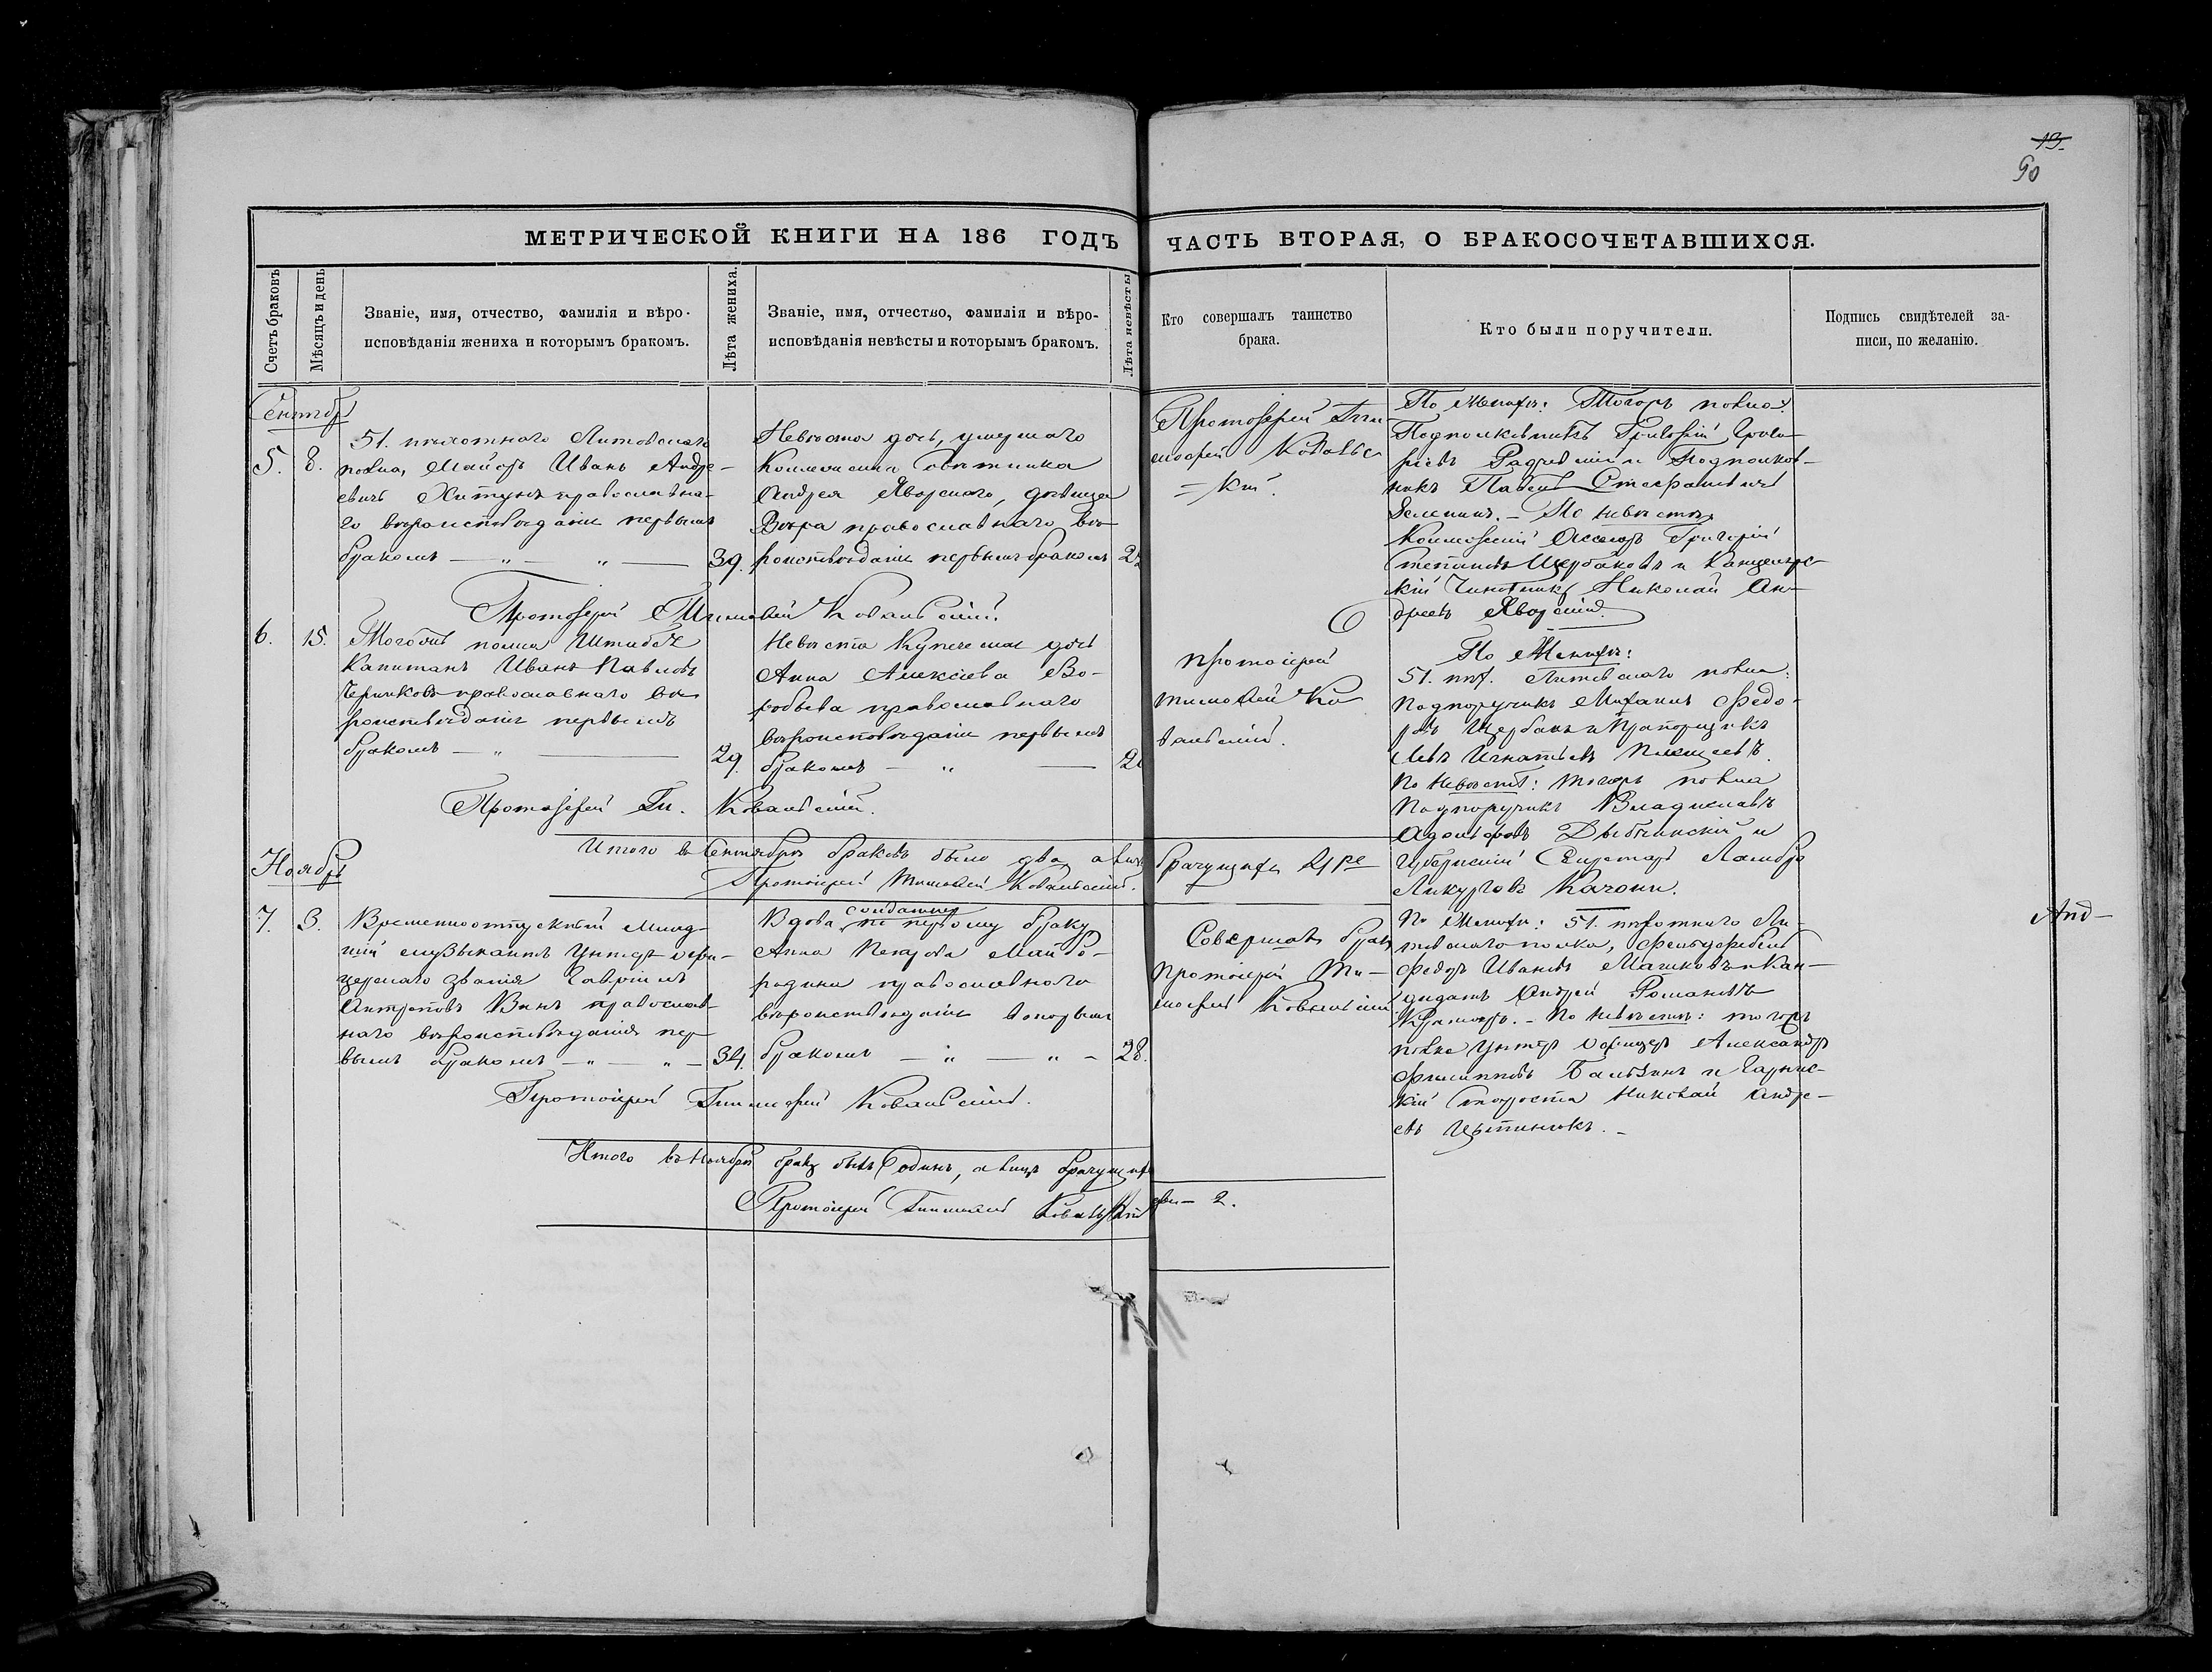 13.
90
МЕТРИЧЕСКОЙ КНИГИ НА 186 ГОДЪ
ЧАСТЬ ВТОРАЯ, О БРАКОСОЧЕТАВШИХСЯ.
Счетъ браковъ
Мѣсяцъ и день
Званіе, имя, отчество, фамилія и вѣро-
исповѣданія жениха и которымъ бракомъ.
Лѣта жениха.
Званіе, имя, отчество, фамилія и вѣро-
исповѣданія невѣсты и которымъ бракомъ.
Лѣта невѣсты
Кто совершалъ таинство
брака.
Кто были поручители.
Подпись свидѣтелей за-
писи, по желанію.
Сентябр
5. 8.
51. пѣхотнаго Литовскаго
полка, Маіоръ Иванъ Андре-
евичъ православна-
го вѣроисповѣданія первымъ
бракомъ — „ — „ — 39.
Невѣста дочь, умершаго
Совѣтника
Андрея Яворскаго, дѣвица
Вѣра православнаго вѣ-
роисповѣданія первымъ бракомъ 2
Протоіерей Ти-
мофей Ковальс
= кій.
По Женихѣ: Тогожъ полка:
Подполковникъ
и Подполков-
никъ Павелъ Стефановичъ
По невѣстѣ
Григорій
Степановъ Щербаковъ и Канцеляр-
кій Чиновникъ Николай Ан-
дреевъ Яворскій.
Протоіерей Тимофей Ковальскій.
6. 15.
Тогожъ полка Штабсъ
Капитанъ Иванъ Павловъ
православнаго вѣ-
роисповѣданія первымъ
бракомъ — „ — 29.
Невѣста Купеческая дочь
Анна Алексѣева Во-
робьева православнаго
вѣроисповѣданія первымъ
бракомъ — „ — 2
Протоіерей
Тимофей Ко
вальскій.
По Женихѣ:
51. пѣх. Литовскаго полка:
Подпоручикъ Михаилъ Федо-
ровъ Щербакъ и Прапорщикъ
Левъ Игнатьевъ
По Невѣстѣ: тогожъ полка
Подпоручикъ Владиславъ
Адольфовъ и
Губернскій Секретарь
Протоіерей Ти. Ковальскій.
Итого въ Сентябрѣ браковъ было два, а лицъ брачущихся 4ре
Протоіерей Тимофей Ковальскій.
Ноябрь
7. 3.
Временноотпускный Млад-
шій музыкантъ Унтеръ офи-
церскаго званія Гавріилъ
православ-
наго вѣроисповѣданія пер-
вымъ бракомъ — „ — „ — 34.
Вдова солдатка по первому браку
Анна Петрова Майбо-
родина православнаго
вѣроисповѣданія вторымъ
бракомъ — „ — „ — 28.
Совершалъ бракъ
Протоіерей Ти-
мофей Ковальскій
По Женихѣ: 51. пѣхотнаго Ли-
товскаго полка, Фельдфебель
Федоръ Ивановъ Машковъ и Кан-
дидатъ Андрей Романовъ
По Невѣстѣ: тогожъ
полка Унтеръ офицеръ Александръ
Филипповъ и
Староста Николай Андре-
евъ
Протоіерей Тимофей Ковальскій.
Итого въ Ноябрѣ бракъ былъ одинъ, а лицъ брачущихъ
ся — 2.
Протоіерей Тимофей Ковальскій